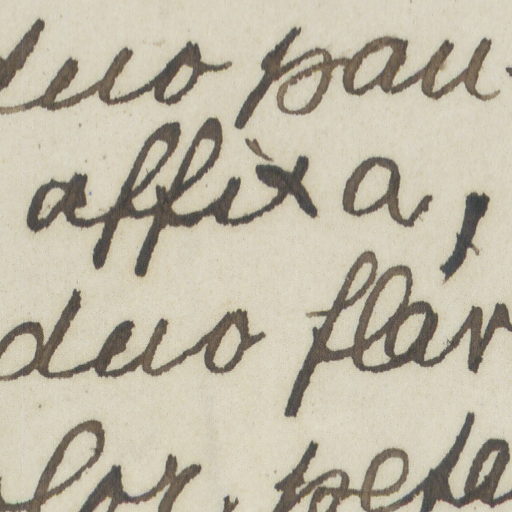 duo pau-
affixa,
duo flav
lor, peta